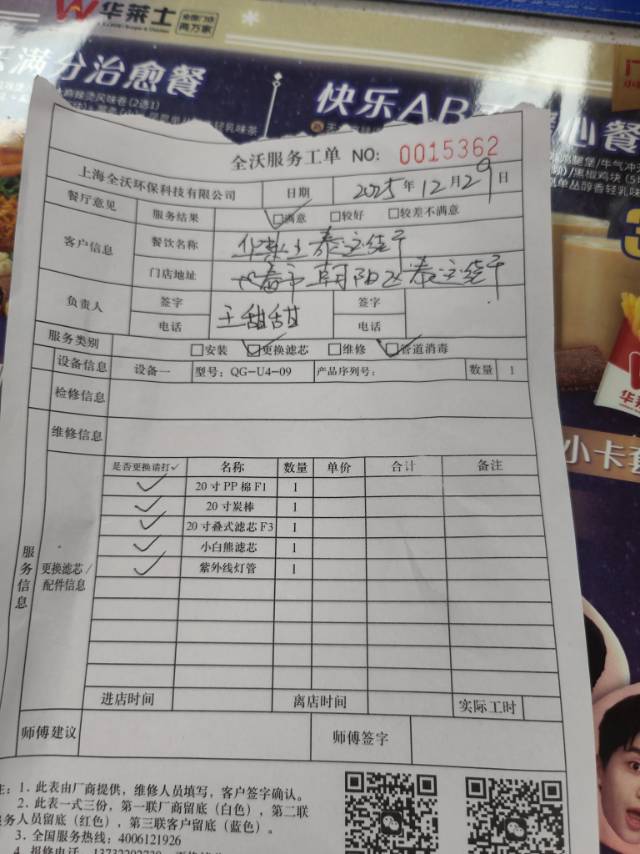 华莱士
全国门店
两万家
乐满分治愈餐
快乐AB
心餐
全沃服务工单 NO: 0015362
上海全沃环保科技有限公司 日期 2025年12月29日
餐厅意见 服务结果 ☑满意 □较好 □较差不满意
客户信息 餐饮名称 华莱士泰这绕干
门店地址 长春市朝阳区泰这绕干
负责人 签字 王甜甜 签字
电话 电话
服务类别 □安装 ☑更换滤芯 □维修 ☑管道消毒
设备信息 设备一 型号: QG-U4-09 产品序列号: 数量 1
检修信息
维修信息
服务信息 更换滤芯/配件信息
是否更换请打✓ 名称 数量 单价 合计 备注
✓ 20寸PP棉F1 1
✓ 20寸炭棒 1
✓ 20寸叠式滤芯F3 1
✓ 小白熊滤芯 1
✓ 紫外线灯管 1
进店时间 离店时间 实际工时
师傅建议 师傅签字
注: 1. 此表由厂商提供，维修人员填写，客户签字确认。
2. 此表一式三份，第一联厂商留底（白色），第二联
服务人员留底（红色），第三联客户留底（蓝色）。
3. 全国服务热线: 4006121926
4. 报修电话
小卡套